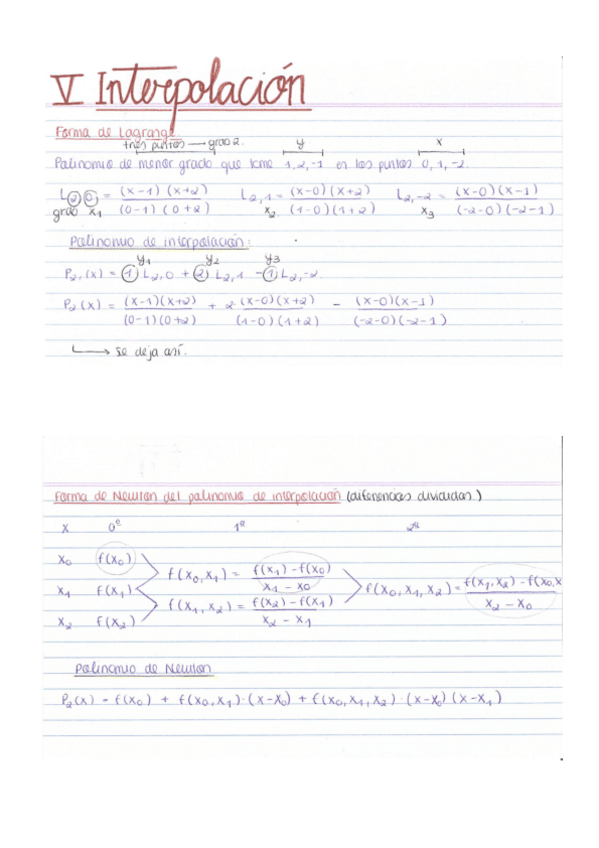 V Interpolación
Forma de Lagrange
tres puntos → grado 2. y x
Polinomio de menor grado que tome 1, 2, -1 en los puntos 0, 1, -2.
L2,0 = (x-1)(x+2) / (0-1)(0+2) L2,1 = (x-0)(x+2) / (1-0)(1+2) L2,-2 = (x-0)(x-1) / (-2-0)(-2-1)
grado x1 x2 x3
Polinomio de interpolación:
y1 y2 y3
P2,(x) = 1 L2,0 + 2 L2,1 - 1 L2,-2
P2(x) = (x-1)(x+2) / (0-1)(0+2) + 2· (x-0)(x+2) / (1-0)(1+2) - (x-0)(x-1) / (-2-0)(-2-1)
→ se deja así.
Forma de Newton del polinomio de interpolación (diferencias divididas.)
x 0ª 1ª 2ª
x0 f(x0)
f(x0,x1) = f(x1)-f(x0) / x1-x0
x1 f(x1) f(x0,x1,x2) = f(x1,x2)-f(x0,x / x2-x0
f(x1,x2) = f(x2)-f(x1) / x2-x1
x2 f(x2)
Polinomio de Newton
P2(x) = f(x0) + f(x0,x1)·(x-x0) + f(x0,x1,x2)·(x-x0)(x-x1)